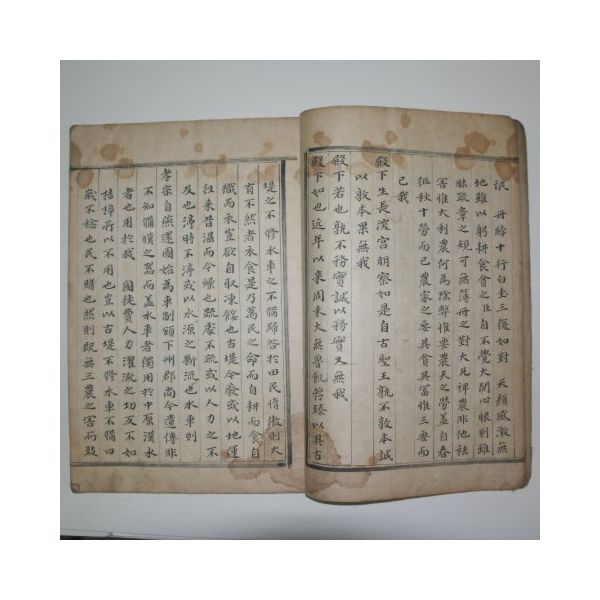 泯 丹綍十行白圭三復如對 天顔感激無
地雖以躬耕食貧之臣自不覺大開心眼則雖
昧叢葦之規可無簿冊之對大凡裨農非他祛
害惟大利農何為除弊惟要農夫之勞盖自春
徂秋十勞而已農家之要具貧具冨惟三要而
已我
殿下生長深宮明察如是自古聖王孰不敦本誠
以敦本果無我
殿下若也孰不務實誠以務實又無我
殿下如也近年以來周禾大無魯飢荐臻以其古
堤之不修水車之不備歸咎於田民情倣則大
有不然者衣食是乃萬民之命而自耕而食自
織而衣豈欲自取凍餒也古堤今廢或以地運
往來昔潴而今燥也疏處不疏或以人力之不
及也渟時不渟或以水源之斷流也水車則
孝宗自燕還國始為車制頒下州郡尚今遺傳非
不知備暵之器而盖水車者獨用於中原漢水
者也用於我 國徒費人力灌漑之功反不如
桔槹所以不用也豈以古堤不修水車不備曰
歲不稔也民不贍也然則既無三農之害而致